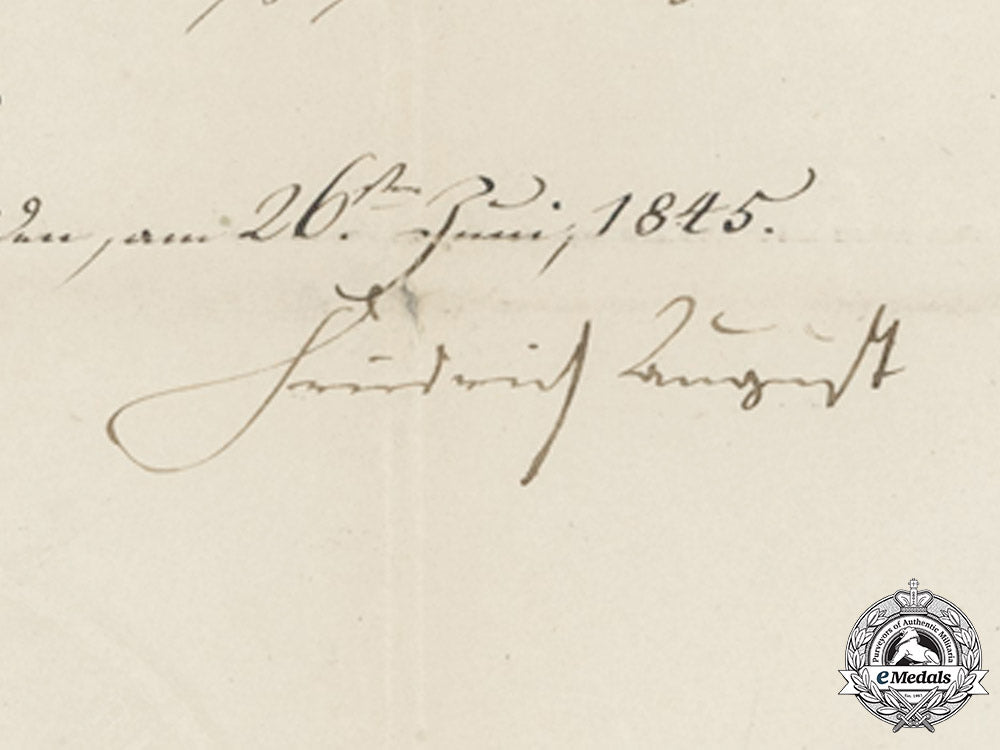 den, am 26.sten Juni, 1845.
Friedrich August
Purveyors of Authentic Militaria
eMedals